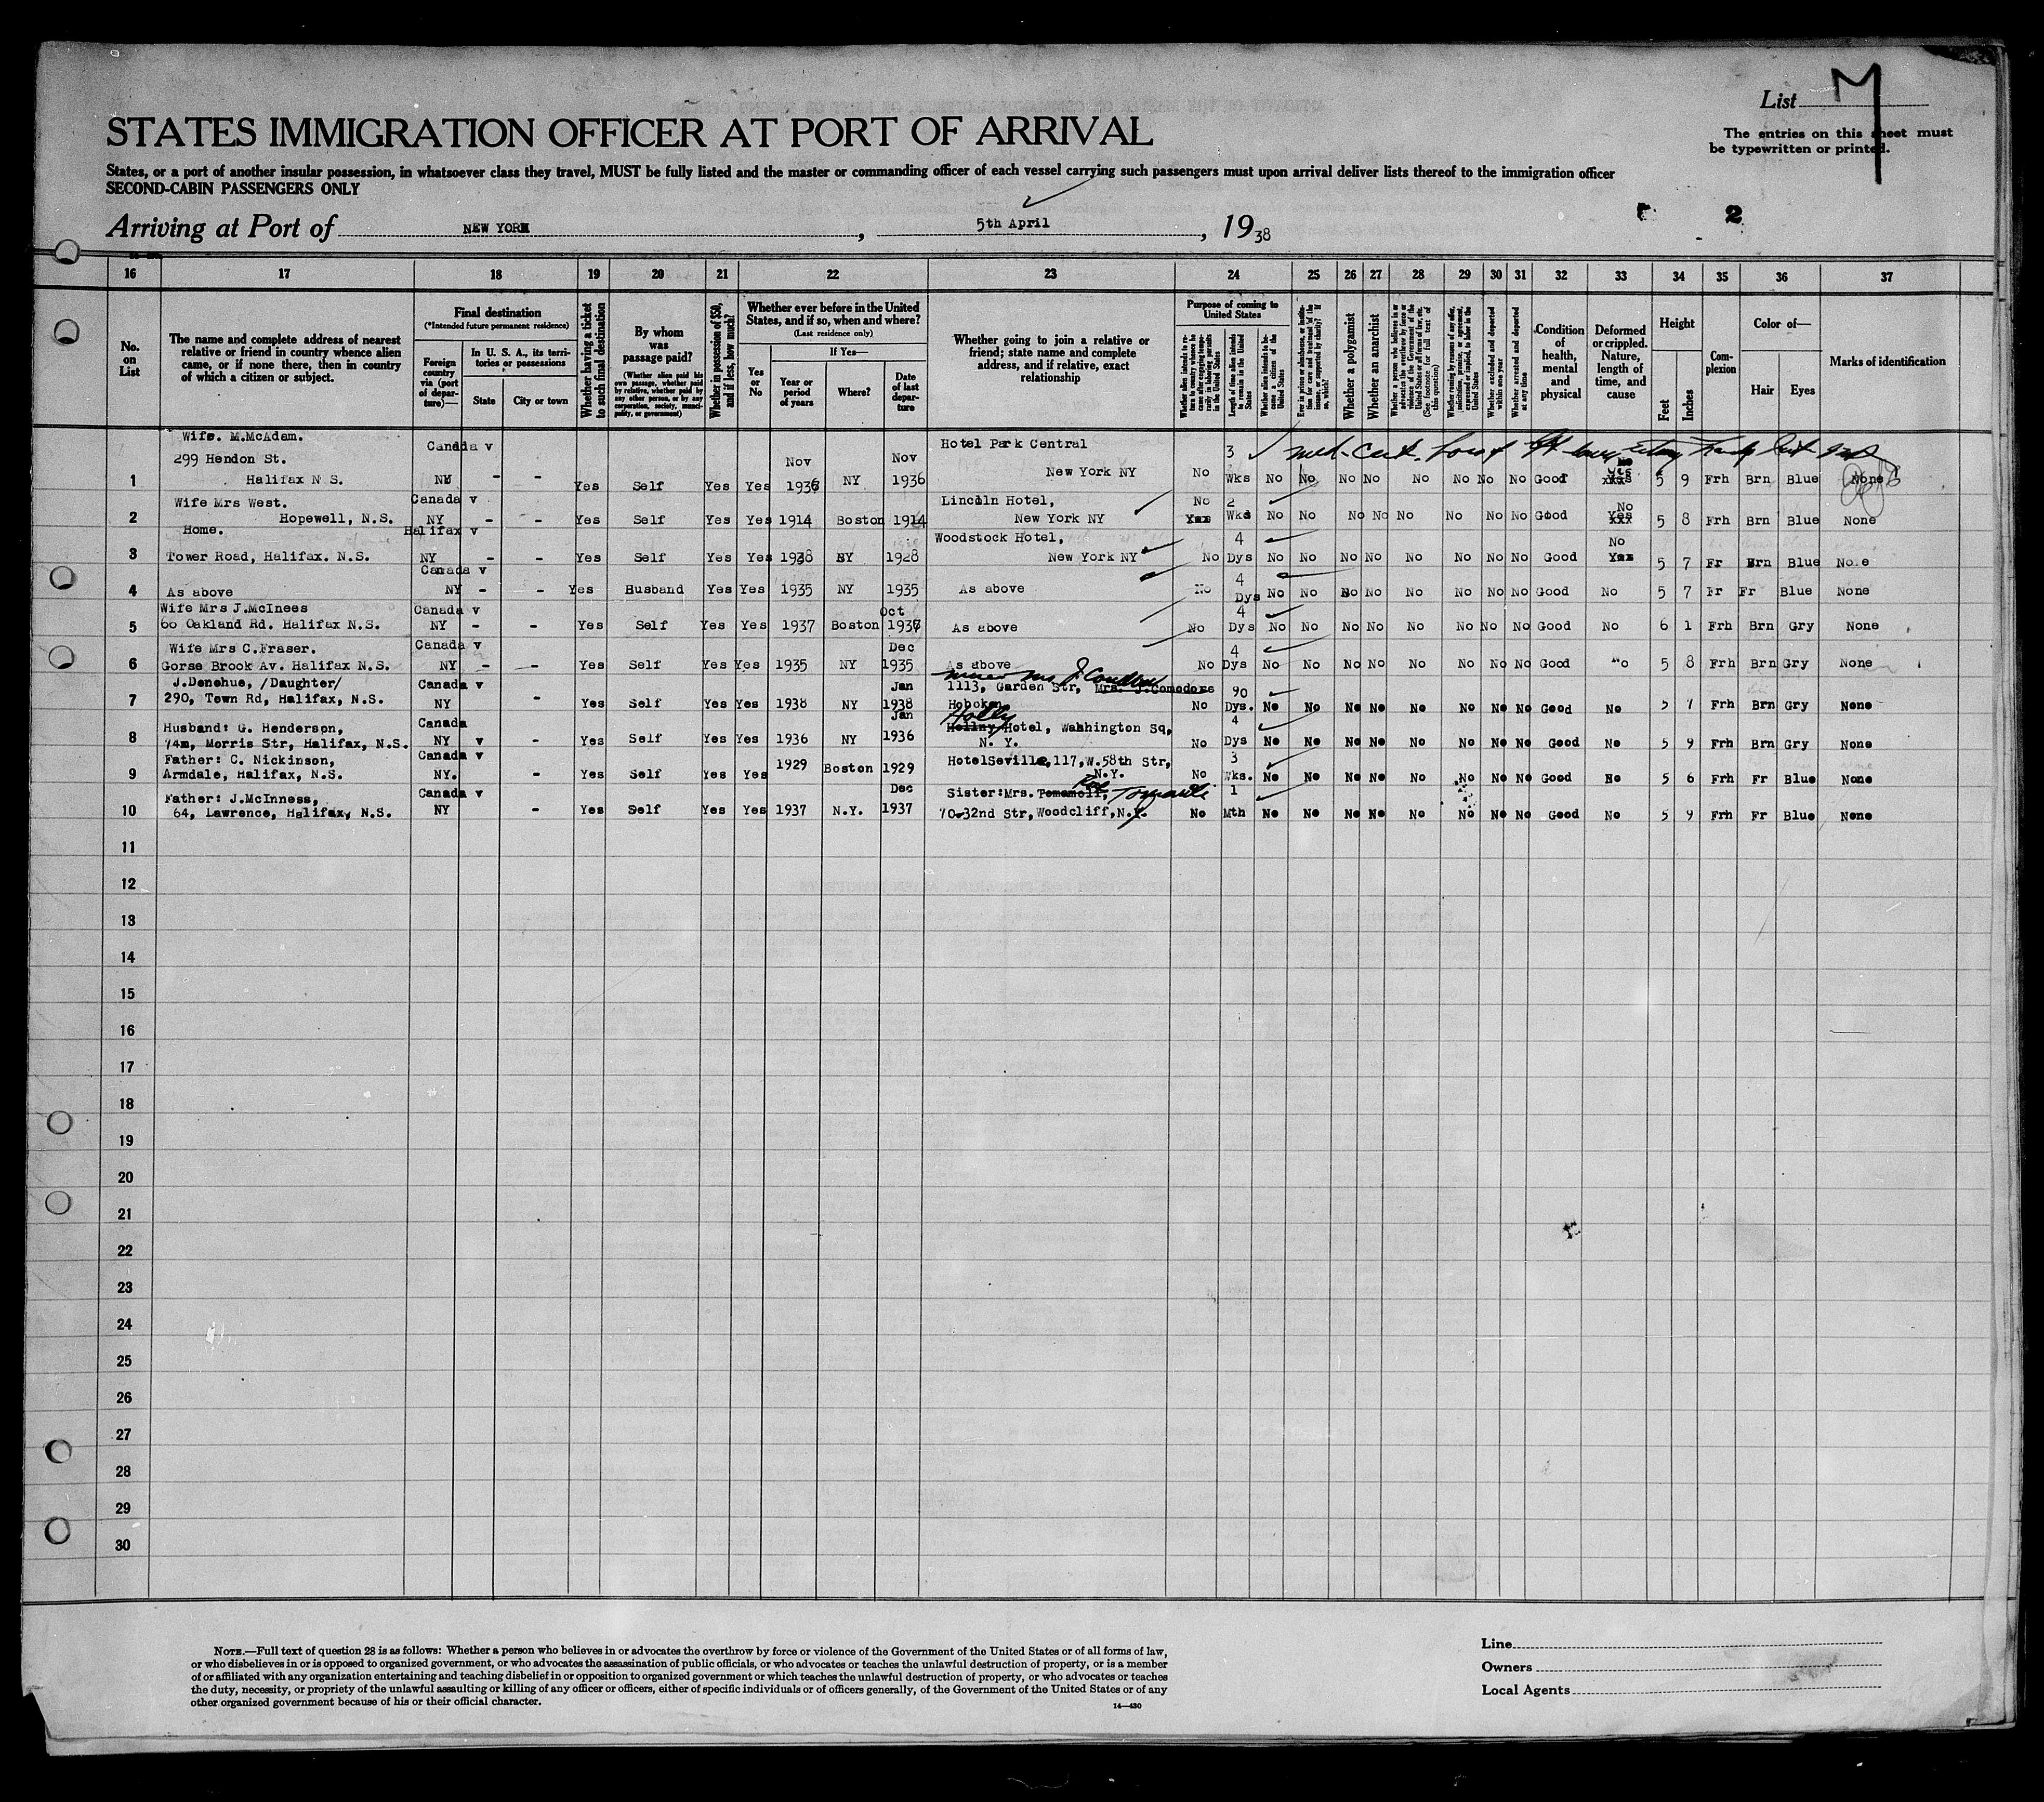 List M
STATES IMMIGRATION OFFICER AT PORT OF ARRIVAL
The entries on this sheet must
be typewritten or printed.
States, or a port of another insular possession, in whatsoever class they travel, MUST be fully listed and the master or commanding officer of each vessel carrying such passengers must upon arrival deliver lists thereof to the immigration officer
SECOND-CABIN PASSENGERS ONLY
Arriving at Port of NEW YORK, 5th April, 1938
2
16 17 18 19 20 21 22 23 24 25 26 27 28 29 30 31 32 33 34 35 36 37
No. on List
The name and complete address of nearest relative or friend in country whence alien came, or if none there, then in country of which a citizen or subject.
Final destination
(*Intended future permanent residence)
Foreign country via (port of departure)—
In U. S. A., its territories or possessions
State
City or town
Whether having a ticket to such final destination
By whom was passage paid?
(Whether alien paid his own passage, whether paid by relative, whether paid by any other person, or by any corporation, society, municipality, or government)
Whether in possession of $50, and if less, how much?
Whether ever before in the United States, and if so, when and where?
(Last residence only)
Yes or No
If Yes—
Year or period of years
Where?
Date of last departure
Whether going to join a relative or friend; state name and complete address, and if relative, exact relationship
Purpose of coming to United States
Length of time alien intends to remain in the United States
Whether alien intends to become a citizen of the United States
Whether a polygamist
Whether an anarchist
Whether excluded and deported within one year
Whether arrested and deported at any time
Condition of health, mental and physical
Deformed or crippled. Nature, length of time, and cause
Height
Feet
Inches
Complexion
Color of—
Hair
Eyes
Marks of identification
Wife. M.McAdam. Canada v Nov Nov Hotel Park Central 3
299 Hendon St.
1 Halifax N S. NY - - Yes Self Yes Yes 1936 NY 1936 New York NY No Wks No No No No No No No No Good Yes 5 9 Frh Brn Blue None
Wife Mrs West. Canada v Lincoln Hotel, No 2 No
2 Hopewell, N.S. NY - - Yes Self Yes Yes 1914 Boston 1914 New York NY Yes Wks No No No No No No No No Good Yes 5 8 Frh Brn Blue None
Home. Halifax v Woodstock Hotel, 4 No
3 Tower Road, Halifax. N.S. NY - - Yes Self Yes Yes 1938 NY 1928 New York NY No Dys No No No No No No No No Good Yes 5 7 Fr Brn Blue None
Canada v 4
4 As above NY - - Yes Husband Yes Yes 1935 NY 1935 As above No Dys No No No No No No No No Good No 5 7 Fr Fr Blue None
Wife Mrs J.McInees Canada v Oct 4
5 60 Oakland Rd. Halifax N.S. NY - - Yes Self Yes Yes 1937 Boston 1937 As above No Dys No No No No No No No No Good No 6 1 Frh Brn Gry None
Wife Mrs C.Fraser. Canada v Dec 4
6 Gorse Brook Av. Halifax N.S. NY - - Yes Self Yes Yes 1935 NY 1935 As above No Dys No No No No No No No No Good No 5 8 Frh Brn Gry None
J.Donehue, /Daughter/ Canada v Jan 1113, Garden Str, Mrs. J.Comodore 90
7 290, Town Rd, Halifax, N.S. NY - Yes Self Yes Yes 1938 NY 1938 Hoboken No Dys. No No No No No No No No Good No 5 7 Frh Brn Gry None
Husband: G. Henderson, Canada Jan Holly 4
8 74m, Morris Str, Halifax, N.S. NY v - Yes Self Yes Yes 1936 NY 1936 Hotel, Washington Sq, N. Y. No Dys No No No No No No No No Good No 5 9 Frh Brn Gry None
Father: C. Nickinson, Canada v HotelSeville,117,W.58th Str, 3
9 Armdale, Halifax, N.S. NY. - Yes Self Yes Yes 1929 Boston 1929 N.Y. No Wks. No No No No No No No No Good No 5 6 Frh Fr Blue None
Father: J.McInness, Canada v Dec Sister:Mrs. 1
10 64, Lawrence, Halifax, N.S. NY - Yes Self Yes Yes 1937 N.Y. 1937 70-32nd Str, Woodcliff, No Mth No No No No No No No No Good No 5 9 Frh Fr Blue None
11
12
13
14
15
16
17
18
19
20
21
22
23
24
25
26
27
28
29
30
NOTE.—Full text of question 28 is as follows: Whether a person who believes in or advocates the overthrow by force or violence of the Government of the United States or of all forms of law,
or who disbelieves in or is opposed to organized government, or who advocates the assassination of public officials, or who advocates or teaches the unlawful destruction of property, or is a member
of or affiliated with any organization entertaining and teaching disbelief in or opposition to organized government or which teaches the unlawful destruction of property, or who advocates or teaches
the duty, necessity, or propriety of the unlawful assaulting or killing of any officer or officers, either of specific individuals or of officers generally, of the Government of the United States or of any
other organized government because of his or their official character.
14—430
Line
Owners
Local Agents